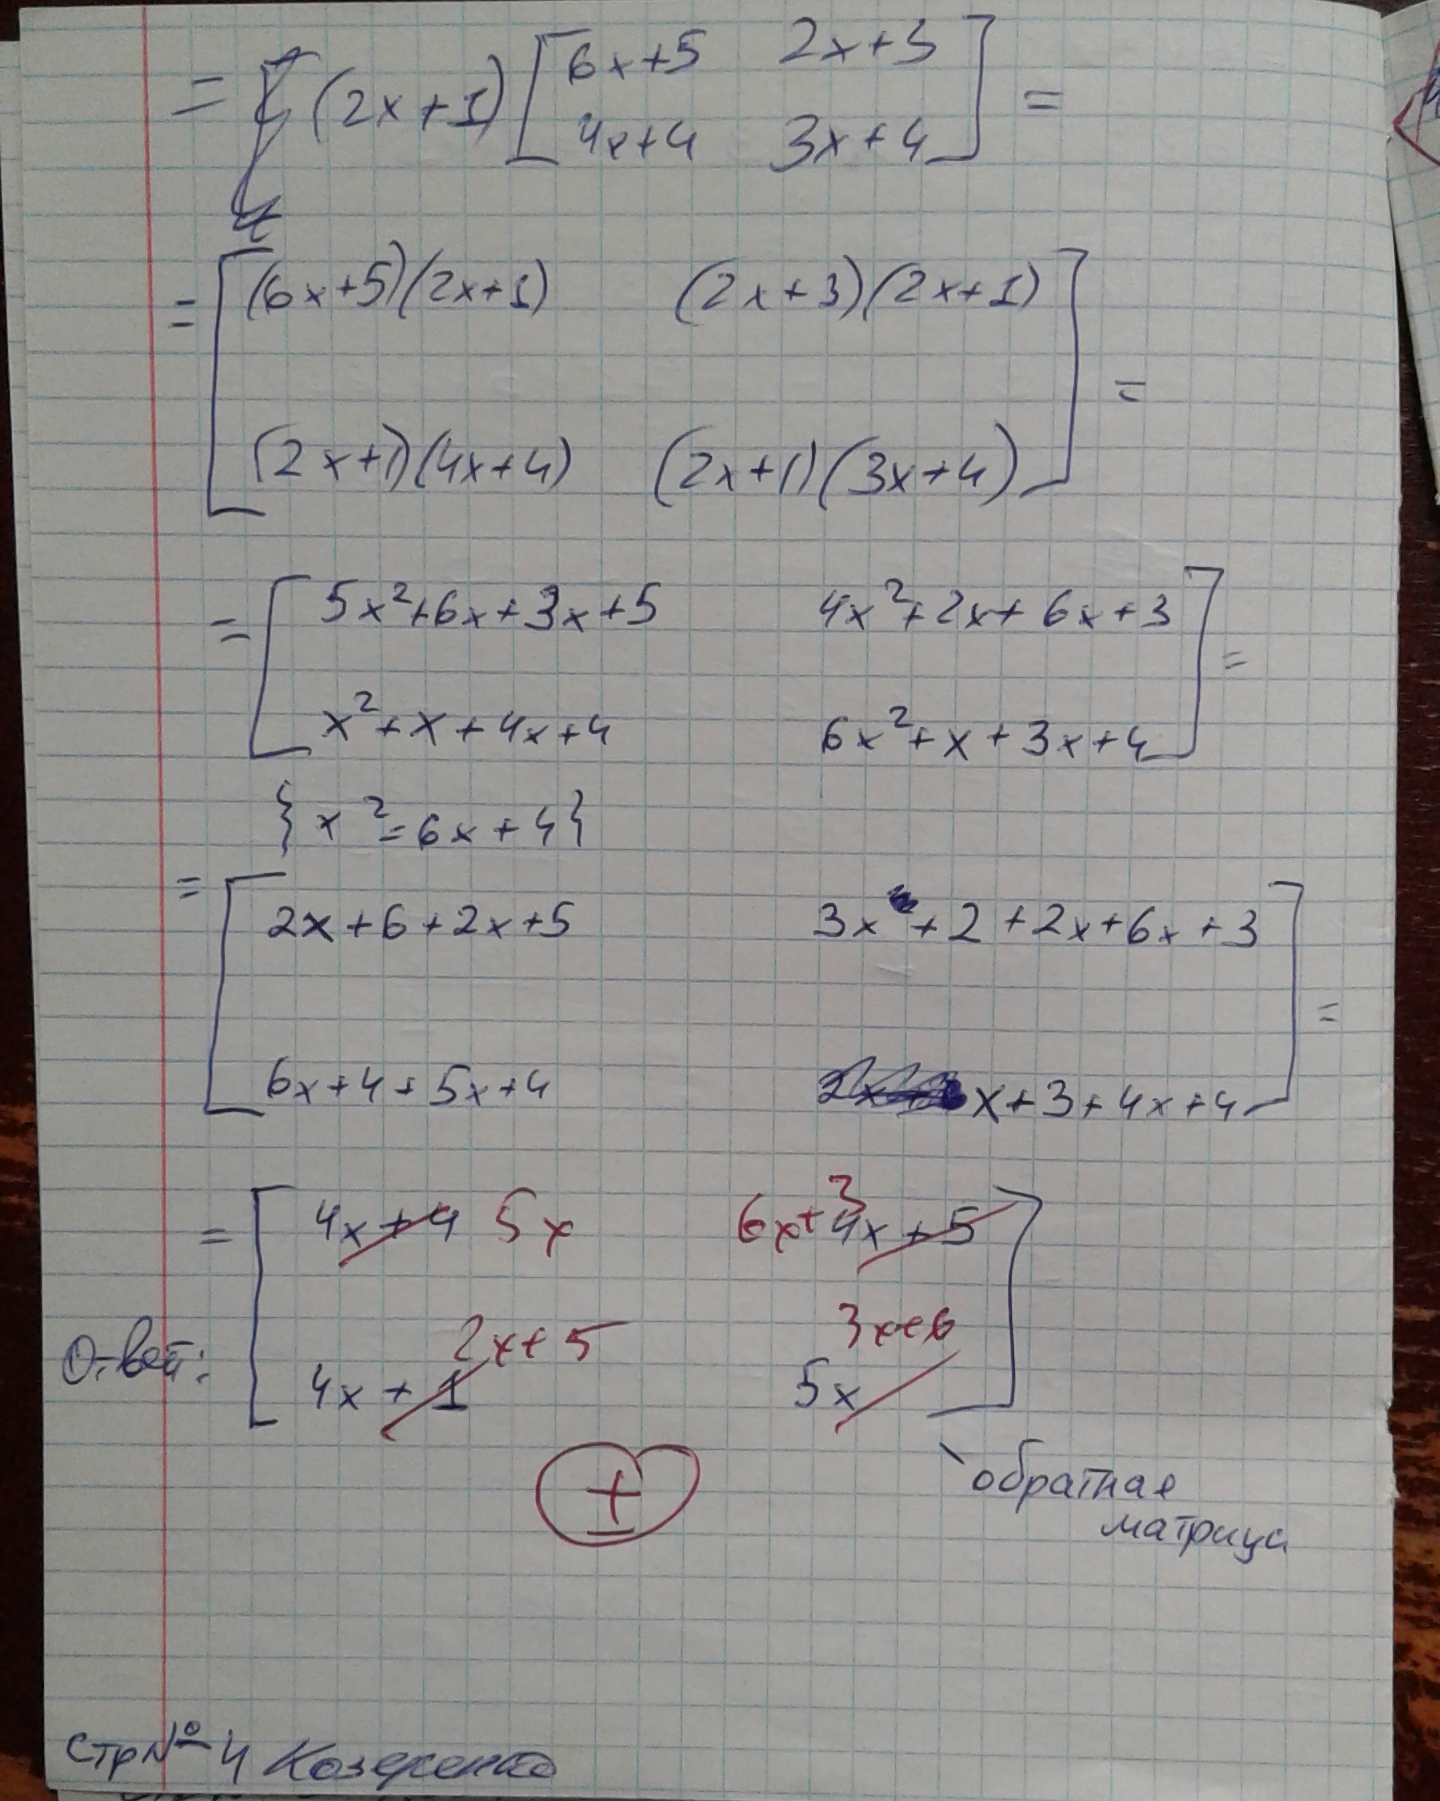 = (2x+1) [ 6x+5 2x+3
4x+4 3x+4 ] =
= [ (6x+5)(2x+1) (2x+3)(2x+1)
(2x+1)(4x+4) (2x+1)(3x+4) ] =
= [ 5x²+6x+3x+5 4x²+2x+6x+3
x²+x+4x+4 6x²+x+3x+4 ] =
{ x²=6x+4 }
= [ 2x+6+2x+5 3x+2+2x+6x+3
6x+4+5x+4 x+3+4x+4 ] =
= [ 4x+4 5x 6x+3 4x+5
2x+5 3x+6
Ответ: 4x+1 5x ]
±
обратная
матрица
Стр № 4